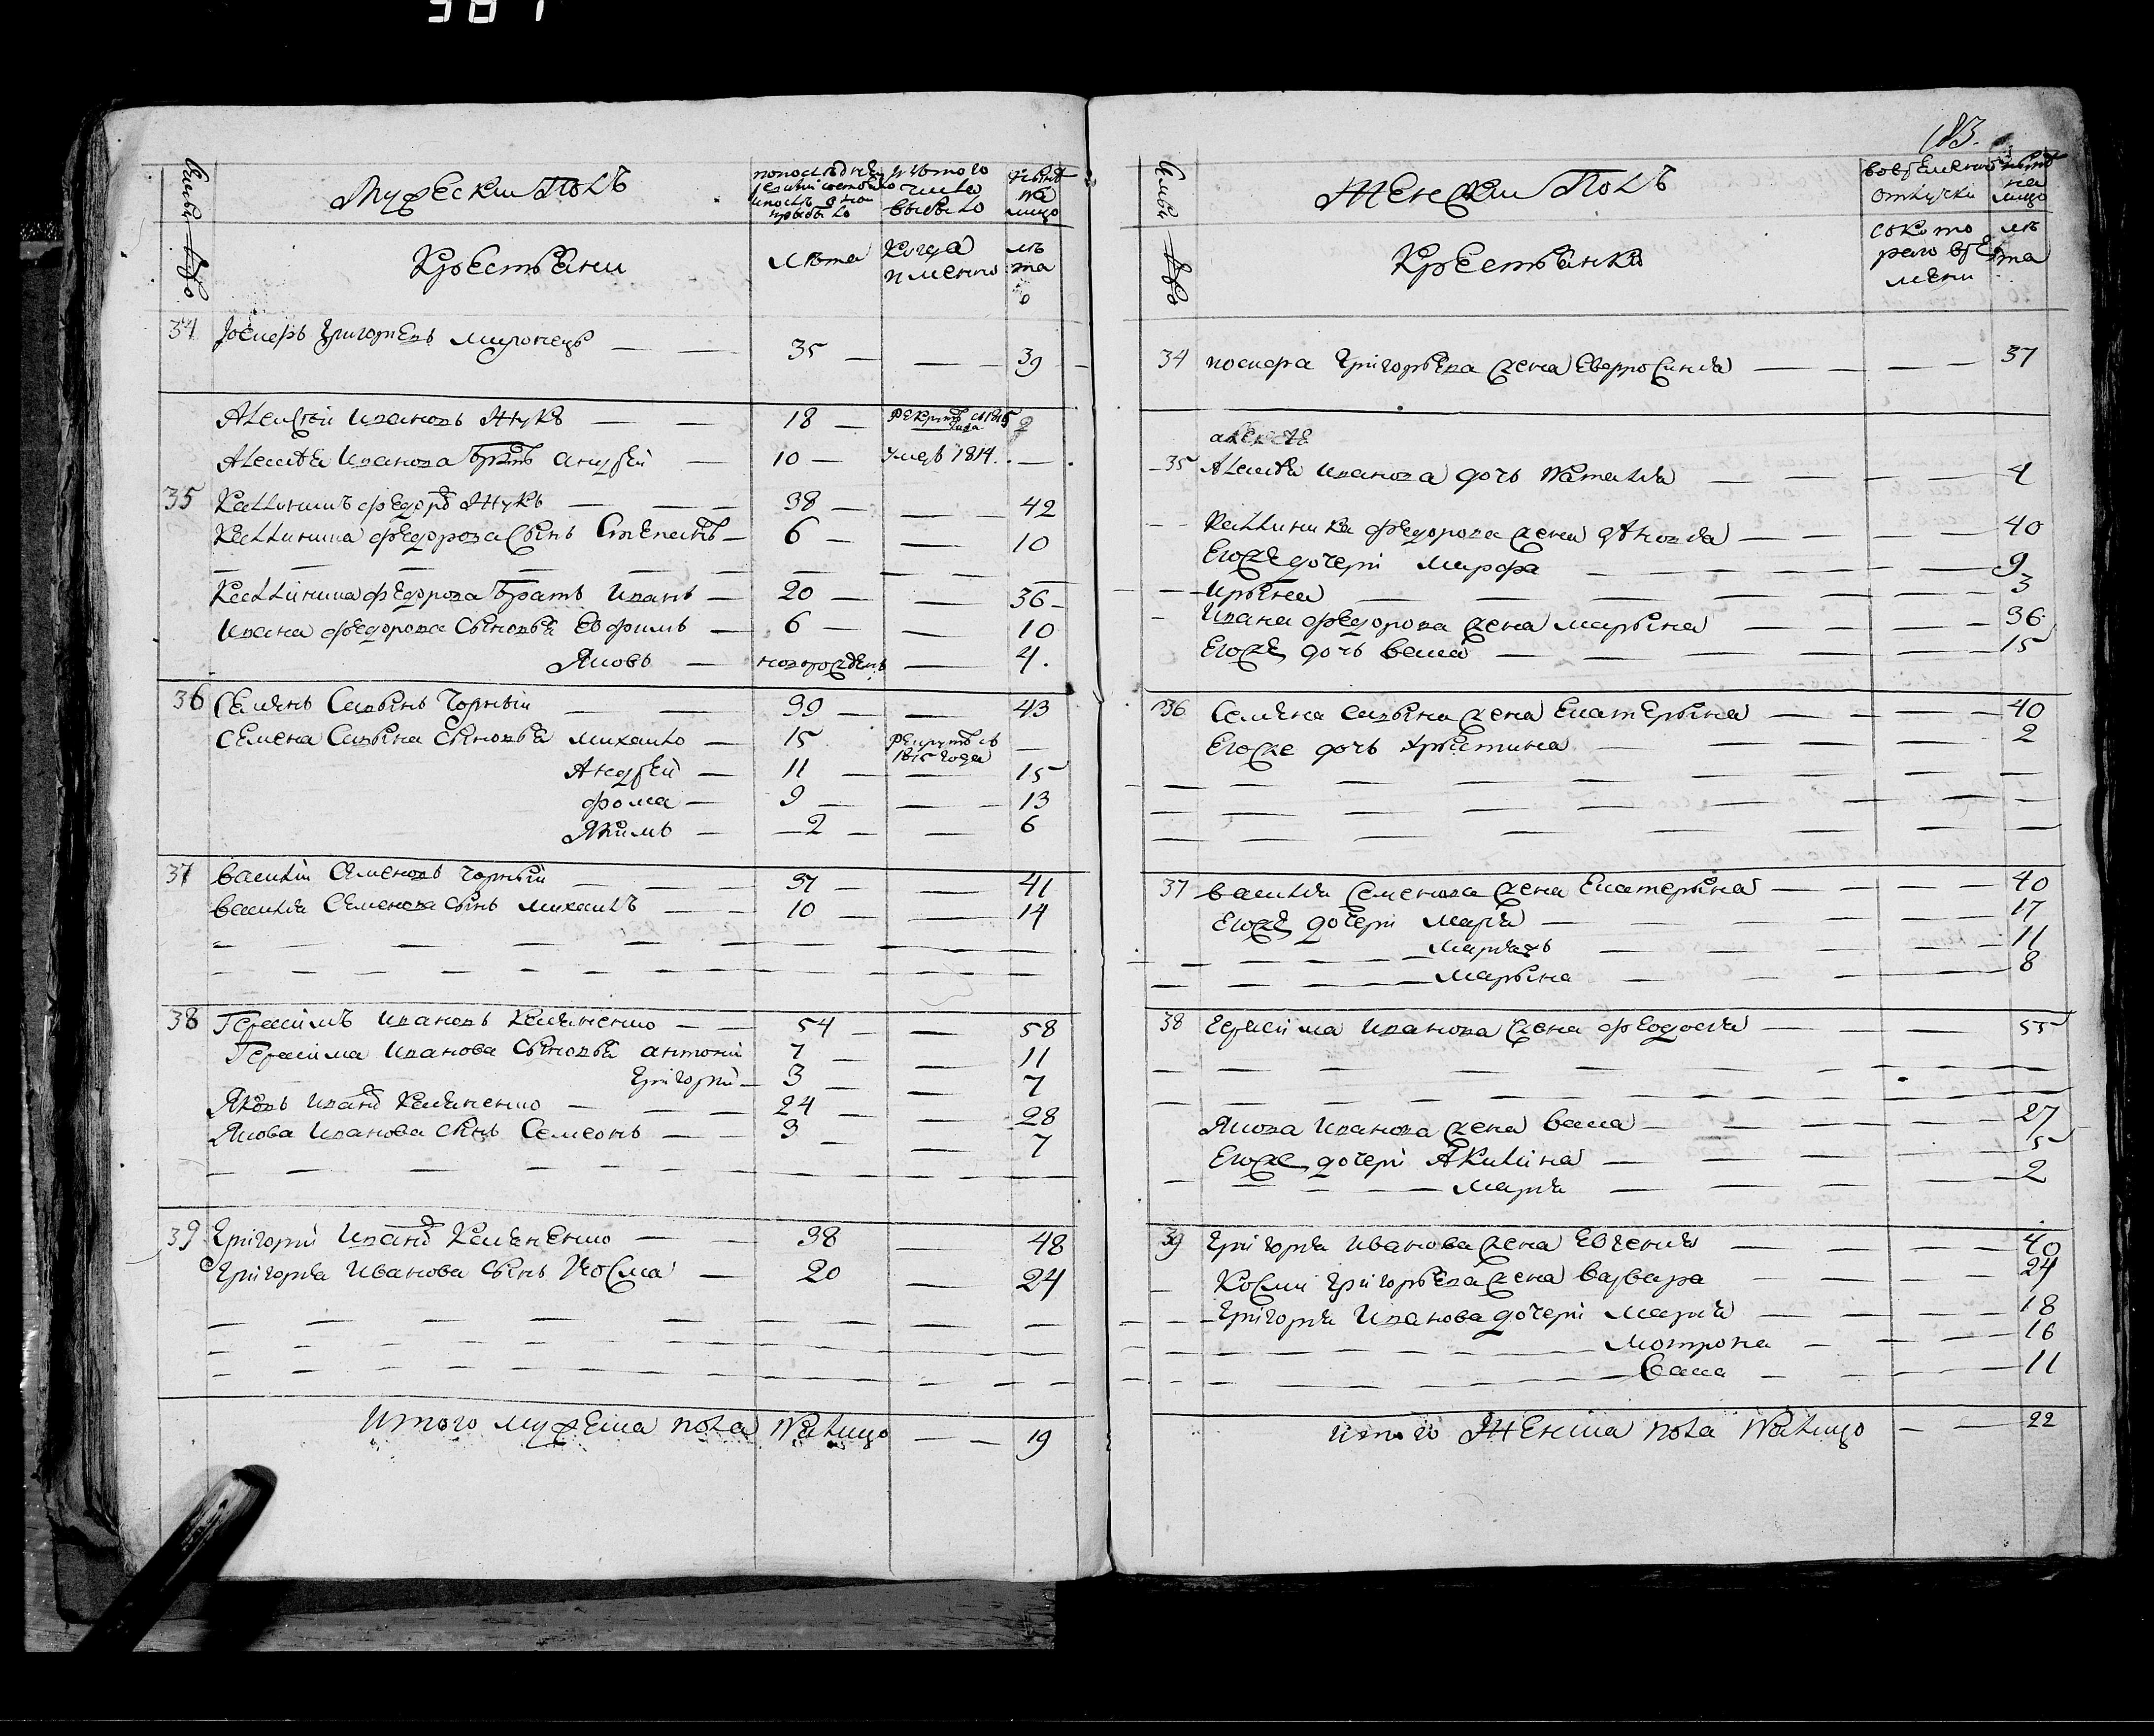 Мужески Полъ
по последней ревизии состояло и после оной прибыло
из того числа выбыло
ныне на лицо
Крестьяни
лета
Когда именно
лета
34 Иосифъ Григорьевъ 35 — — 39
Алексей Ивановъ Жукъ — — 18 — рекрутъ съ 1815 года
Алексея Иванова братъ Андрей — 10 — умеръ 1814. —
35 Каллиникъ Федоровъ Жукъ — — — 38 — — 42
Каллиника Федорова сынъ Степанъ — 6 — — 10
Каллиника Федорова братъ Иванъ — 20 — — 36
Ивана Федорова сыновья Евфимъ — 6 — — 10
Яковъ — новорожденъ — 4.
36 Семенъ Савинъ Чорный — — 39 — — 43
Семена Савина сыновья Михайло — 15 рекрутъ съ 1815 года —
Андрей — 11 — — 15
Фома — 9 — — 13
Якимъ — 2 — — 6
37 Василий Семеновъ Чорный — — 37 — — 41
Василия Семенова сынъ Михаилъ — — 10 — — 14
38 Герасимъ Ивановъ — — 54 — — 58
Герасима Иванова сыновья Антоний 7 — — 11
Григорий — 3 — — 7
Яковъ Иванов — — — 24 — — 28
Якова Иванова сынъ Семеонъ — — 3 — — 7
39 Григорий Иванов — — 38 — 48
Григория Иванова сынъ Косма — 20 — 24
Итого мужеска пола на лицо — — 19
183.
Женски Полъ
во временной отлучки
ныне на лицо
Крестьянки
съ которого времени
лета
34 Иосифа Григорьева жена Евфросиния — — — — 37
35 Алексея Иванова дочь Наталия — — — — 4
Каллиника Федорова жена — — — — 40
Его же дочери Марфа — — — — 9
Ирина — — — — 3
Ивана Федорова жена Марьина — — — — 36
Его же дочь Васса — — — — 15
36 Семена Савина жена Екатерина — — — — 40
Его же дочь Христина — — — — 2
37 Василия Семенова жена Екатерина — — — — 40
Его же дочери Мария — — — — 17
— — — — 11
Марьина — — — — 8
38 Герасима Иванова жена Феодосия — — — — 55
Якова Иванова жена Васса — — — — 27
Его же дочери Акилина — — — — 5
Мария — — — — 2
39 Григория Иванова жена Евгения — — — — 40
Косми Григорьева жена Варвара — — — — 24
Григория Иванова дочери Мария — — — — 18
Мотрона — — — — 16
Васса — — — — 11
Итого Женска пола на лицо — — 22